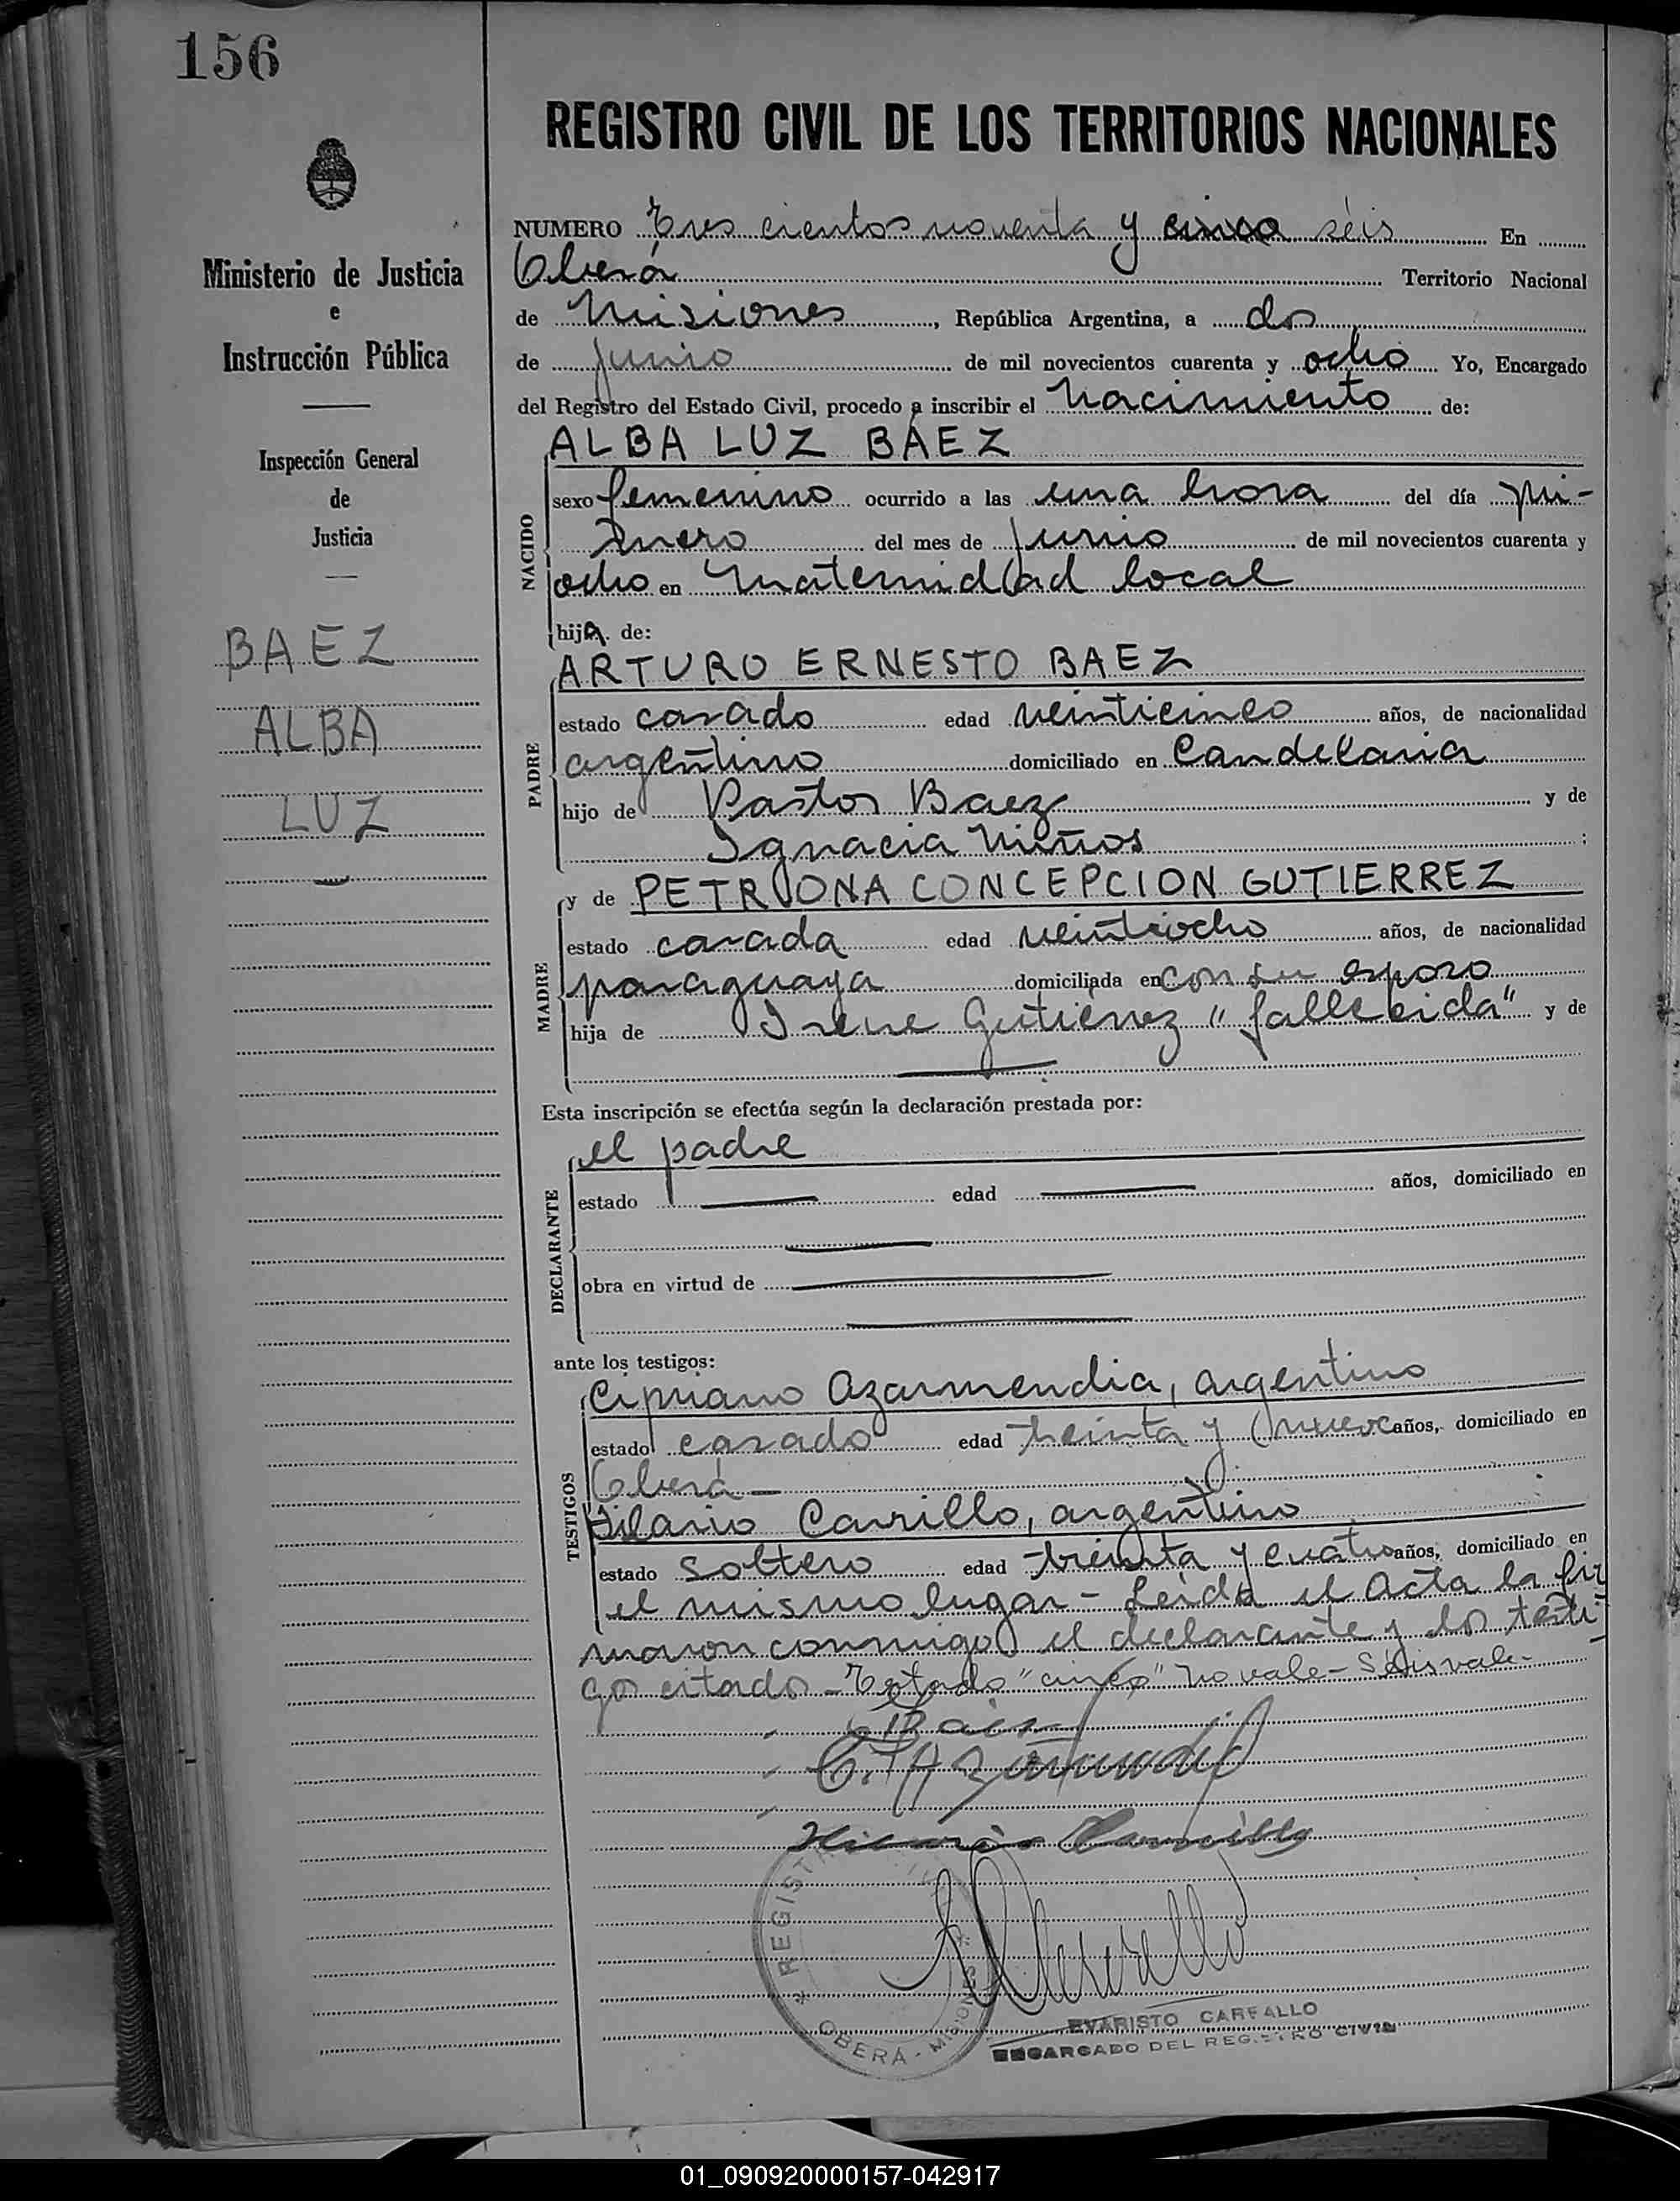 156
REGISTRO CIVIL DE LOS TERRITORIOS NACIONALES
Ministerio de Justicia
e
Instrucción Pública
Inspección General
de
Justicia
BAEZ
ALBA
LUZ
NUMERO Tres cientos noventa y cinco séis En
Oberá Territorio Nacional
de Misiones, República Argentina, a dos
de junio de mil novecientos cuarenta y ocho Yo, Encargado
del Registro del Estado Civil, procedo a inscribir el Nacimiento de:
ALBA LUZ BAEZ
NACIDO
sexo femenino ocurrido a las una hora del día pri-
mero del mes de junio de mil novecientos cuarenta y
ocho en Maternidad local
hija de:
ARTURO ERNESTO BAEZ
PADRE
estado casado edad veinticinco años, de nacionalidad
argentino domiciliado en Candelaria
hijo de Pastor Baez y de
Ignacia ;
y de PETRONA CONCEPCION GUTIERREZ
MADRE
estado casada edad veintiocho años, de nacionalidad
paraguaya domiciliada en con su esposo
hija de Irene Gutiérrez "fallecida" y de
Esta inscripción se efectúa según la declaración prestada por:
el padre
DECLARANTE
estado edad años, domiciliado en
obra en virtud de
ante los testigos:
Cipriano Azarmendia, argentino
TESTIGOS
estado casado edad treinta y nueve años, domiciliado en
Oberá -
Hilario Carrillo, argentino
estado soltero edad treinta y cuatro años, domiciliado en
el mismo lugar - Leída el Acta la fir
maron conmigo el declarante y los testi-
gos citados - Testado "cinco" No vale - Séis vale -
Baez
C. Azarmendia
Hilario Carrillo
REGIST
OBERÁ - MISIONES
EVARISTO CARFALLO
ENCARGADO DEL REGISTRO CIVIL
01_090920000157-042917